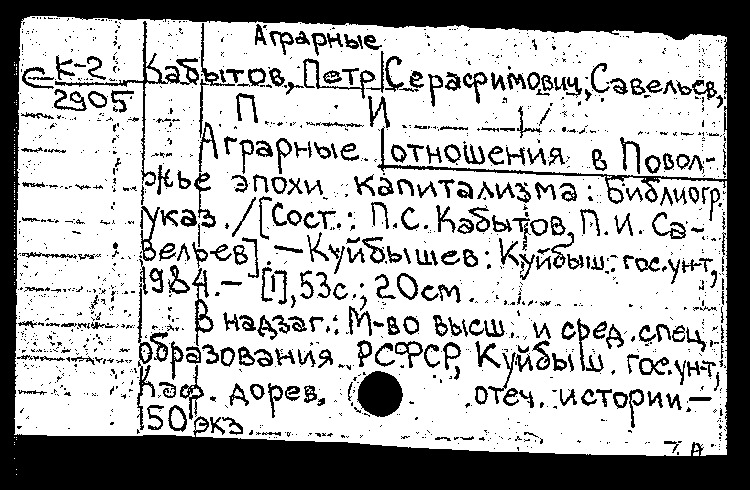 Аграрные
К-2 Кабытов, Петр Серафимович, Савельев,
2905
П И
Аграрные отношения в Повол-
жье эпохи капитализма: Библиогр.
указ. / [Сост.: П.С. Кабытов, П.И. Са-
вельев]. — Куйбышев: Куйбыш. гос. ун-т,
1984. — [1], 53с.; 20см.
В надзаг.: М-во высш. и сред. спец.
образования РСФСР, Куйбыш. гос. ун-т,
Каф. дорев. отеч. истории. —
150 экз.